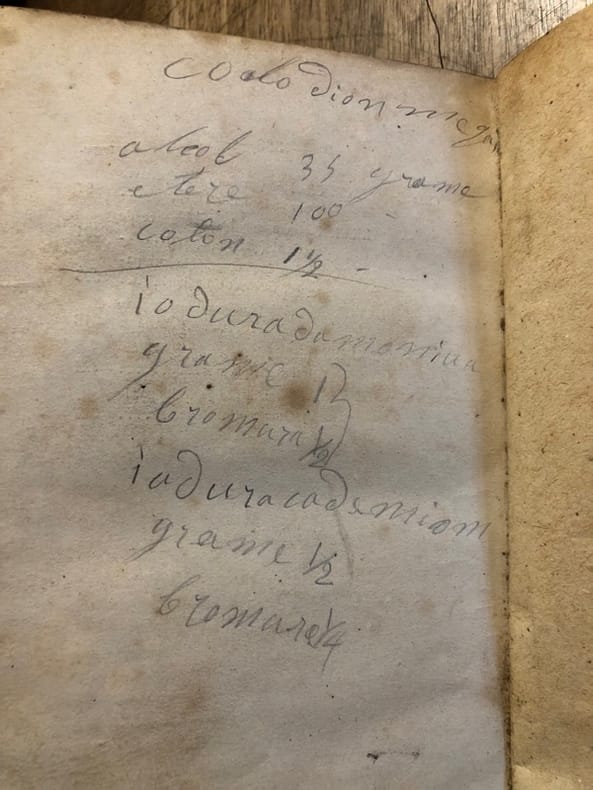 colodion negam
alcol 35 grame
etere 100 -
coton 1 1/2 -
ioduradamoniua
grame 1
bromura 1/2
ioduracademiom
grame 1/2
bromure 1/4